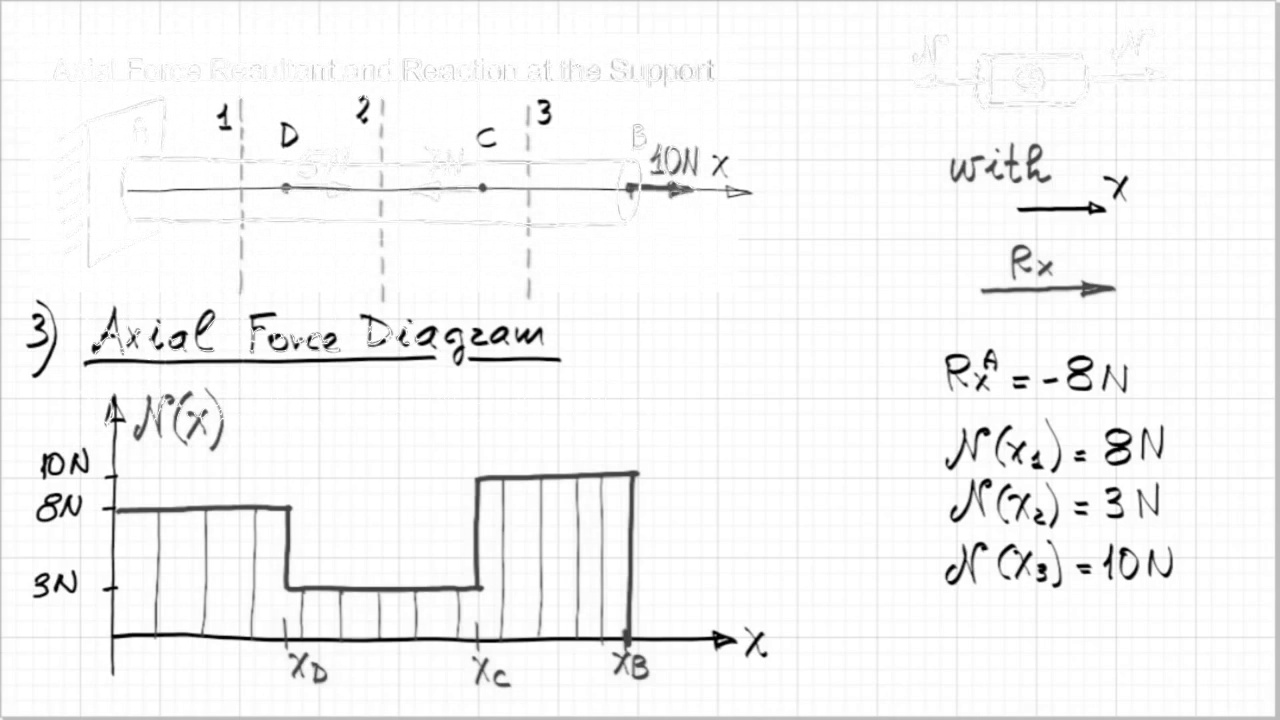 Axial Force Resultant and Reaction at the Support
1 2 3
A D C B
5N 7N 10N x
N N
with
x
Rx
3) Axial Force Diagram
N(x)
10N
8N
3N
xD xC xB x
RxA = -8N
N(x1) = 8N
N(x2) = 3N
N(x3) = 10N